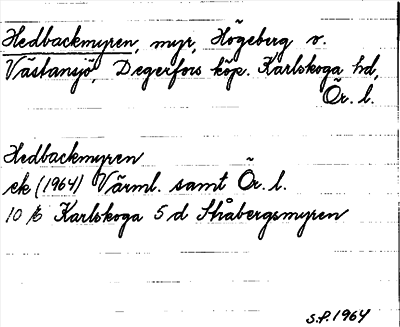 Hedbackmyren, myr, Högeberg o.
Västansjö, Degerfors köp. Karlskoga hd,
Ör. l.
Hedbackmyren
ek (1964) Värml. samt Ör. l.
10 E Karlskoga 5 d Stråbergsmyren
S.P. 1964